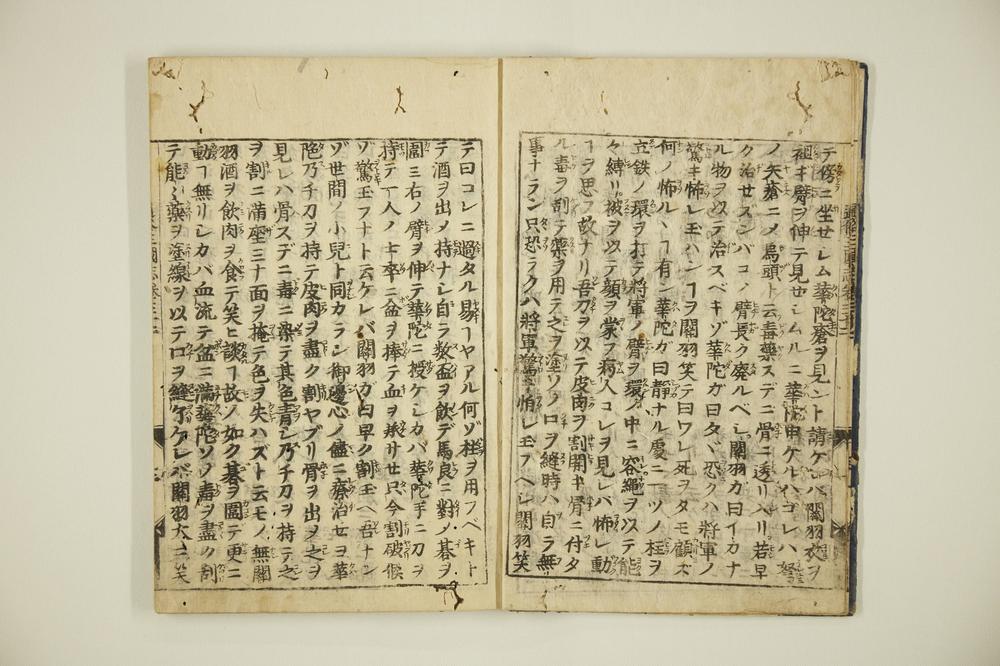 テ傍ニ坐セシム華陀瘡ヲ見ント請ケレバ關羽衣ヲ
袒ギ臂ヲ伸テ見セシムルニ華陀申ケルハコレハ弩
ノ矢瘡ニメ烏頭ト云毒藥スデニ骨ニ透リハリ若早
ク治セズンバコノ臂長ク廢ルベシ關羽カ曰イカナ
ル物ヲ以テ治スベキゾ華陀ガ曰タヾ恐クハ將軍ノ
驚キ怖レ玉ハンヿヲ關羽笑テ曰ワレ死ヲダモ顧ズ
何ノ怖ルヽヿ有ン華陀ガ曰靜ナル處ニ一ツノ柱ヲ
立鉄ノ環ヲ打テ將軍ノ臂ヲ環ノ中ニ容繩ヲ以テ能
々縛リ被ヲ以テ顔ヲ蒙フ病人コレヲ見レバ怖レ動
ヿヲ思フ故ナリ吾刀ヲ以テ皮肉ヲ割開キ骨ニ付タ
ル毒ヲ刮テ藥ヲ用テ之ヲ塗ソノ口ヲ縫時ハ自ラ無
事ナラン只恐ラクハ將軍驚キ怕レ玉フヘシ關羽笑
テ曰コレニ過タル易ヿヤアル何ゾ柱ヲ用フベキト
テ酒ヲ出メ持ナシ自ラ数盃ヲ飲デ馬良ニ對メ碁ヲ
圍ミ右ノ臂ヲ伸テ華陀ニ授ケシカバ華陀手ニ刀ヲ
持テ一人ノ士卒ニ盆ヲ捧テ血ヲ承サセ只今割破候
ゾ驚玉フナト云ケレバ關羽カ曰早ク割玉ヘ吾ナン
ゾ世間ノ小兒ト同カラン御邊心ノ儘ニ療治セヨ華
陀乃チ刀ヲ持テ皮肉ヲ盡ク割ヤブリ骨ヲ出ヲ之ヲ
見レハ骨スデニ毒ニ染テ其色青シ乃チ刀ヲ持テ之
ヲ割ニ滿座ミナ面ヲ掩テ色ヲ失ハズト云モノ無關
羽酒ヲ飲肉ヲ食テ笑ヒ談ヿ故ノ如ク碁ヲ圍テ更ニ
動ヿ無リシカバ血流テ盆ニ滿華陀ソノ毒ヲ盡ク刮
テ能々藥ヲ塗線ヲ以テ口ヲ縫ケケレバ關羽大ニ笑